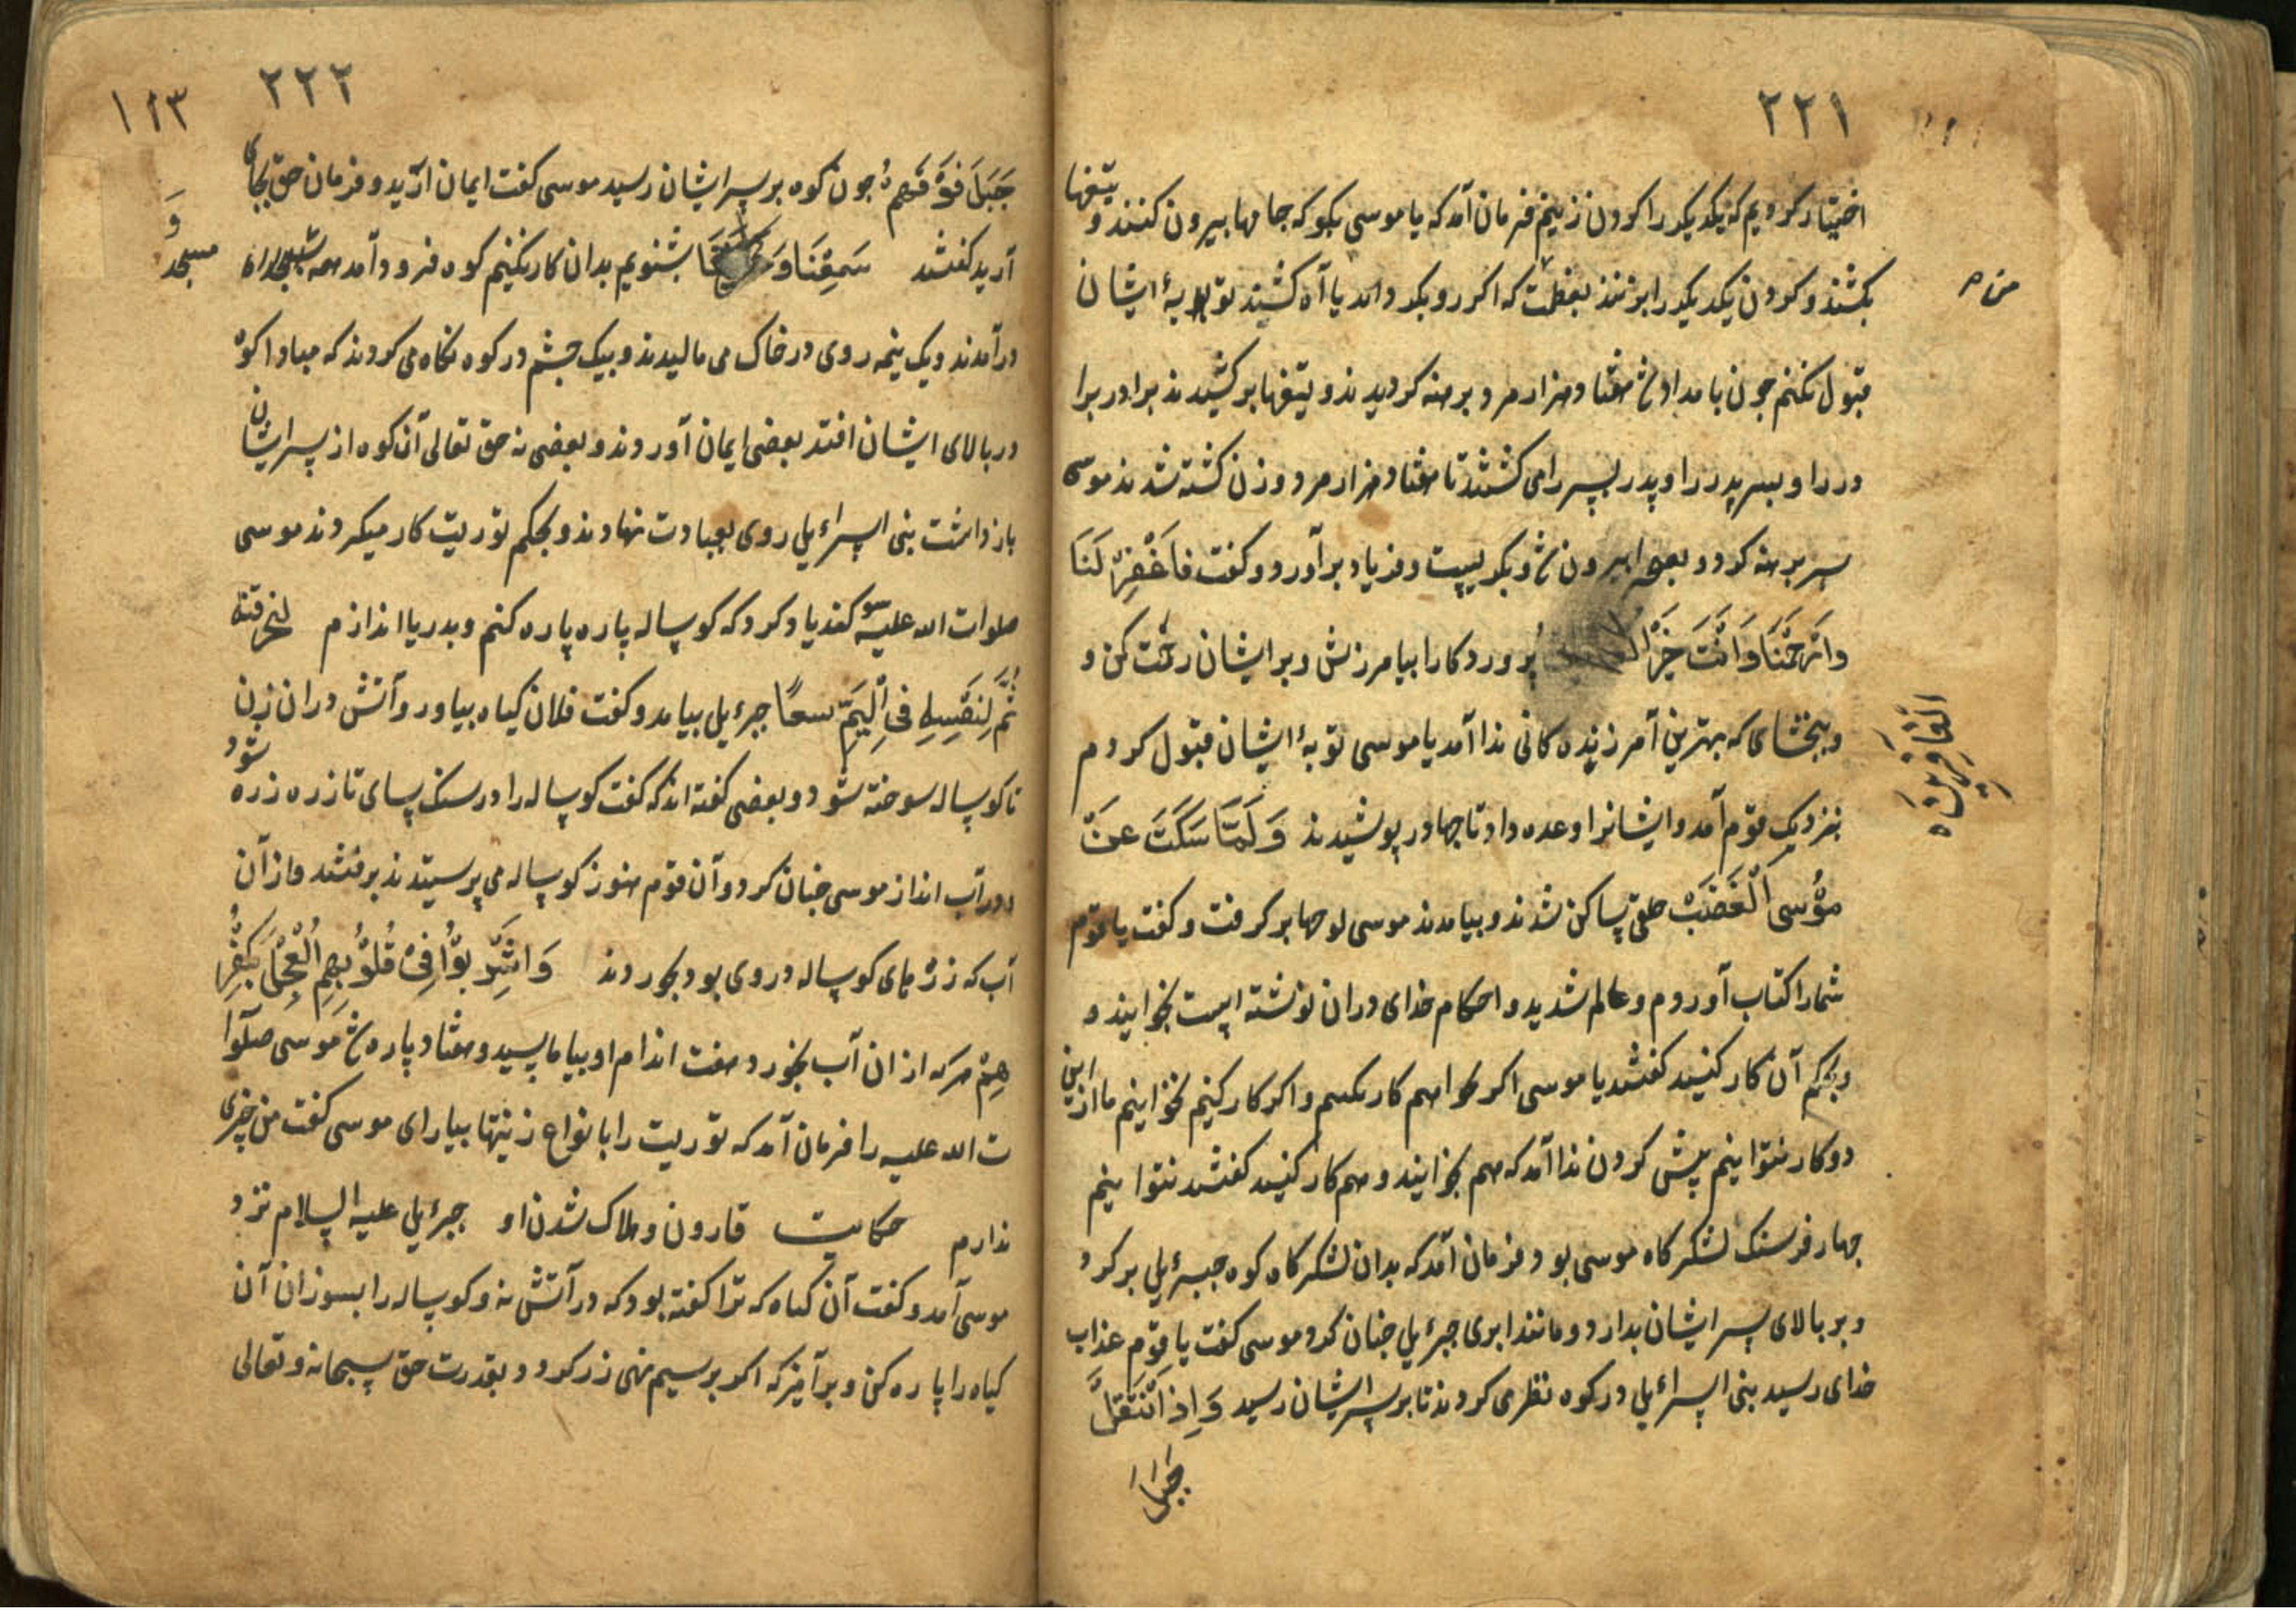 ٢٢١
اختیار کردیم که یکدیکر را کردن زنیم فرمان آمد که یا موسی بکو که جامها بیرون کنند و تیغها
بکشند و کردن یکدیکر را بزنند بعظمت که اکر رو بکرداند یا آه کشند توبهٔ ایشان
قبول نکنم جون بامداد شد هفتاد هزار مرد برهنه کردیدند و تیغها برکشیدند برادر برا
در را و بسر پدر را و پدر بسر را می کشتند تا هفتاد هزار مرد و زن کشته شدند موسی
سر برهنه کرد و بصحرا بیرون شد و بکریست و فریاد برآورد و کفت فَاغْفِرْ لَنَا
وَارْحَمْنَا وَاَنْتَ خَیْرُ پروردکارا بیامرزش و بر ایشان رحمت کن و
الْغَافِرِینَ
و ببخشای که بهترین آمرزنده کانی ندا آمد یا موسی توبهٔ ایشان قبول کردم
بنزدیک قوم آمد و ایشانرا وعده داد تا جها در پوشیدند وَلَمَّا سَکَتَ عَنْ
مُوسَی الْغَضَبُ خلق ساکن شدند و بیامدند موسی لوحها بر کرفت و کفت یا قوم
شما را کتاب آوردم و عالم شدید و احکام خدای در ان نوشته است بخوانید و
و بحکم آن کار کنید کفتند یا موسی اکر بخواهیم کار نکنیم و اکر کار کنیم نخوانیم ما از این
دو کار نتوانیم پیش کردن ندا آمد که هم بخوانید و هم کار کنید کفتند نتوانیم
جهار فرسنک لشکر کاه موسی بود فرمان آمد که بدان لشکر کاه کوه جبرئیل برکرد
و بر بالای سر ایشان بدارد و مانند ابری جبرئیل جنان کرد موسی کفت یا قوم عذاب
خدای رسید بنی اسرائیل در کوه نظر می کردند تا بر سر ایشان رسید وَاِذ اَنْتَقْلَ
جبل
٢٢٢
١٢٣
جَبَلَ فَوْقَهُمْ جون کوه بر سر ایشان رسید موسی کفت ایمان آرید و فرمان حق بجای
آرید کفتند سَمِعْنَا وَ بشنویم بدان کار نکنیم کوه فرود آمد همه بسجده
و
مسجد
در آمدند و یک نیمه روی در خاک می مالیدند و بیک جشم در کوه نکاه می کردند که مبادا کوه
در بالای ایشان افتد بعضی ایمان آوردند و بعضی نه حق تعالی آن کوه از سر ایشان
باز داشت بنی اسرائیل روی بعبادت نهادند و بحکم توریت کار میکردند موسی
صلوات الله علیه سوکند یاد کرد که کوساله پاره پاره کنم و بدریا اندازم لنحرقنه
ثُمَّ لَنَنْسِفَنَّهُ فِی الْیَمِّ نسفًا جبرئیل بیامد و کفت فلان کیاه بیاور و آتش در ان زن
تا کوساله سوخته شود و بعضی کفته اند که کفت کوساله را در سنک سای تا زره زره شود
در آب انداز موسی جنان کرد و آن قوم هنوز کوساله می پرستیدند برفتند و از آن
آب که زرهای کوساله در وی بود بخوردند وَاُشْرِبُوا فِی قُلُوبِهِمُ الْعِجْلَ بِکُفْرِ
هِمْ هر که از ان آب بخورد هفت اندام او بیاماسید و هفتاد پاره شد موسی صلوا
ت الله علیه را فرمان آمد که توریت را بانواع زینتها بیارای موسی کفت من چیزی
ندارم حکایت قارون و هلاک شدن او جبرئیل علیه السلام نزد
موسی آمد و کفت آن کیاه که ترا کفته بود که در آتش نه و کوساله را بسوزان آن
کیاه را پاره کن و برآمیز که اکر بر سیم نهی زر کردد بقدرت حق سبحانه و تعالی